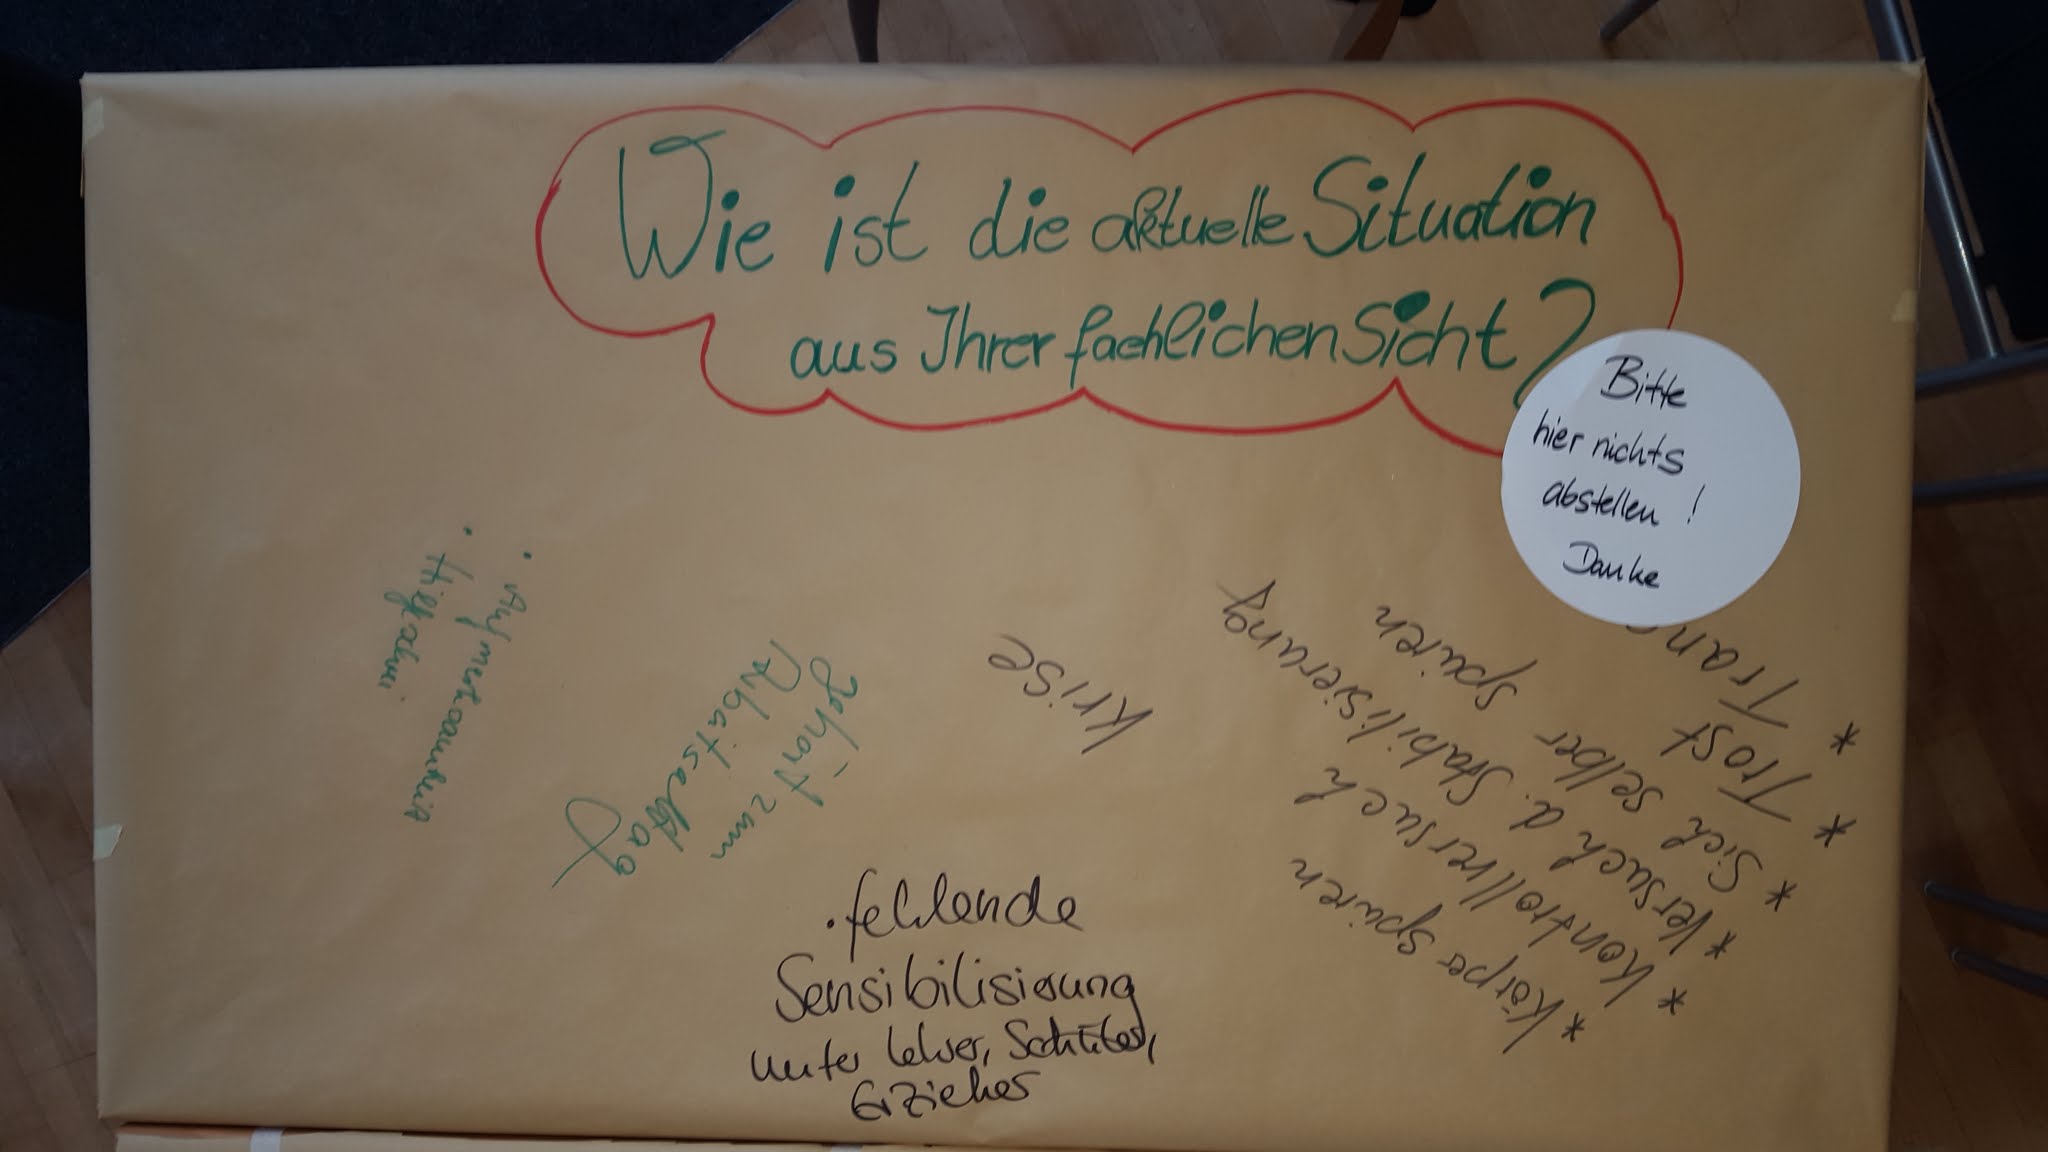 Wie ist die aktuelle Situation
aus Ihrer fachlichen Sicht?
Bitte
hier nichts
abstellen!
Danke
• Aufmerksamkeit
• Hilfeschrei
gehört zum
Arbeitsalltag
Krise
* Körper spüren
* Kontrollversuch
* Versuch d. Stabilisierung
* Sich selber spüren
* Trost
*
• fehlende
Sensibilisierung
unter Lehrer, Schüler,
Erzieher